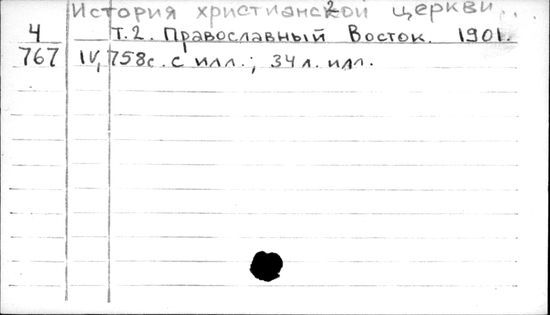 История христианской церкви...
2
4 Т.2. Православный Восток. 1901.
767 IV, 758с. с илл.; 34 л. илл.